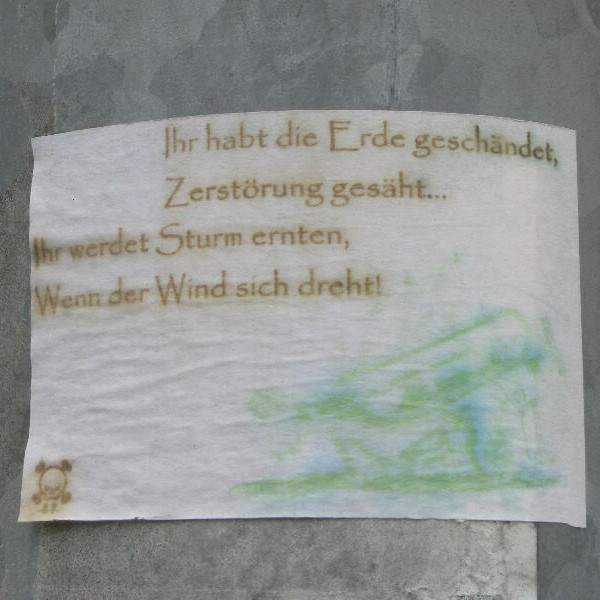 Ihr habt die Erde geschändet,
Zerstörung gesäht...
Ihr werdet Sturm ernten,
Wenn der Wind sich dreht!